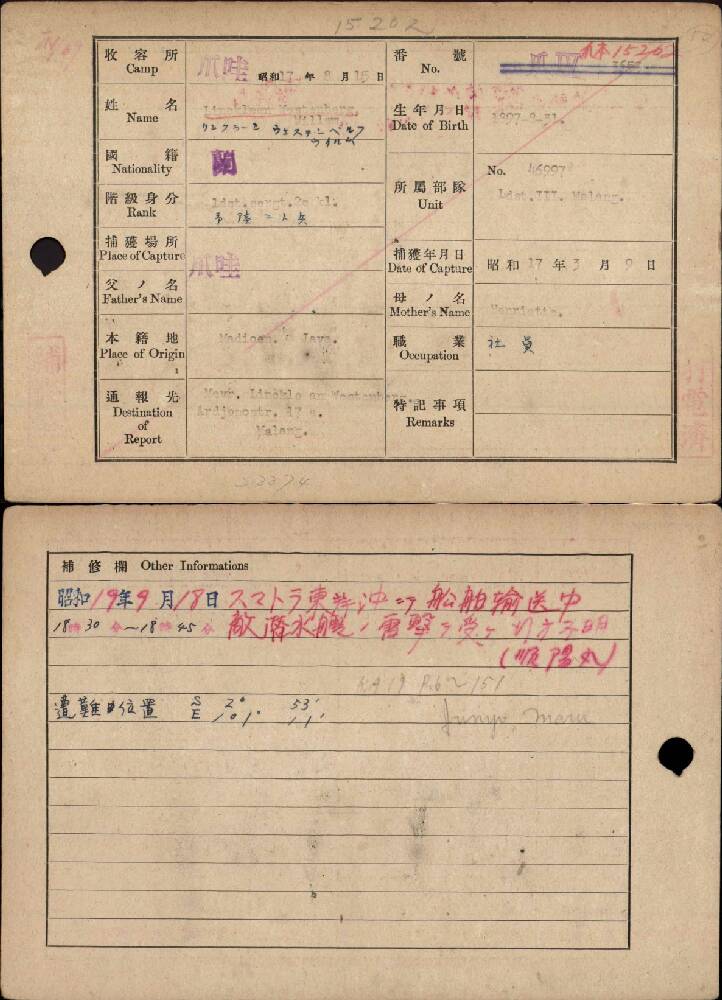 15202
收容所 Camp 爪哇 昭和17年8月15日
番號 No. 15202
姓名 Name
リンクラーェ ヴェステンベルフ
ウイルム
生年月日 Date of Birth 1897-8-31.
國籍 Nationality 蘭
階級身分 Rank Ldst.sergt.2e kl.
所屬部隊 Unit No. 46997
Ldst.III. Malang.
捕獲場所 Place of Capture 爪哇
捕獲年月日 Date of Capture 昭和17年3月9日
父ノ名 Father's Name
母ノ名 Mother's Name Henriette.
本籍地 Place of Origin Madioen. Java.
職業 Occupation 社員
通報先 Destination of Report
Ardjoenostr. 17 a.
Malang.
特記事項 Remarks
補修欄 Other Informations
昭和19年9月18日 スマトラ東岸沖ニテ船舶輸送中
18時30分~18時45分 敵潜水艦ノ雷撃ヲ受ケ行方不明
(順陽丸)
遭難位置 S 2° 53'
E 101° 11'
Junyo Maru